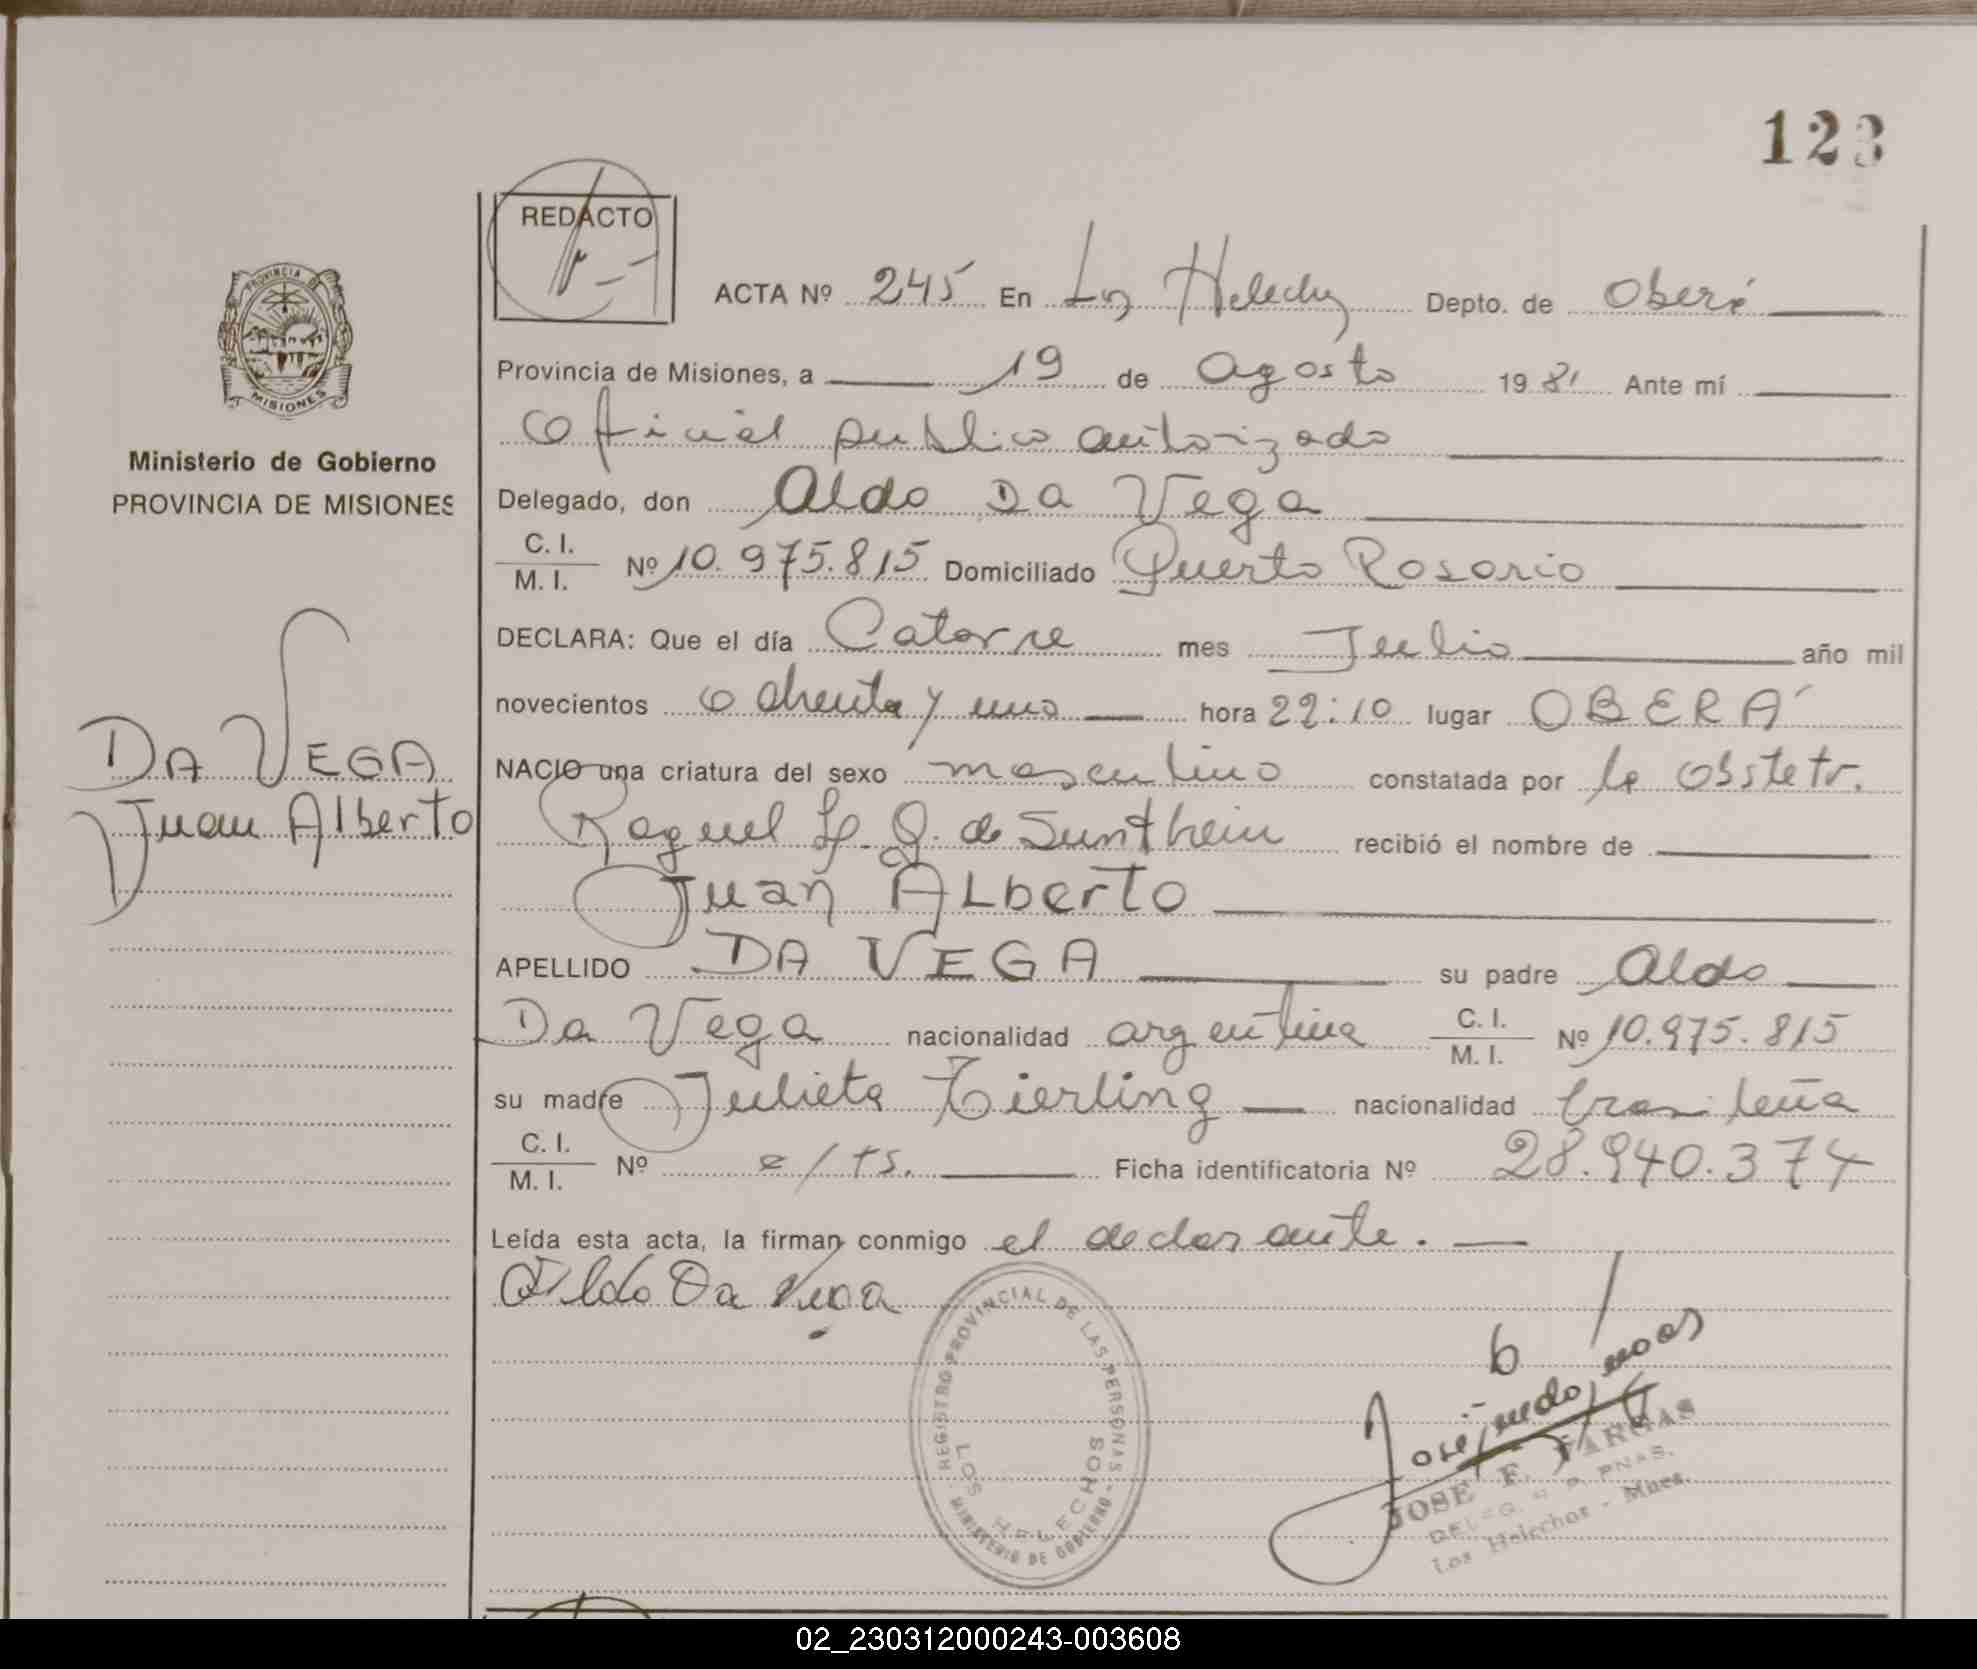 123
REDACTO
ACTA Nº 245 En Los Helechos Depto. de Oberá
Provincia de Misiones, a 19 de Agosto 1981 Ante mí
Oficial publico autorizado
Delegado, don Aldo Da Vega
C. I.
M. I. Nº 10.975.815 Domiciliado Puerto Rosario
DECLARA: Que el día Catorce mes Julio año mil
novecientos ochenta y uno hora 22:10 lugar OBERÁ
NACIO una criatura del sexo masculino constatada por la obstetr.
Raquel G. de Sunthein recibió el nombre de
Juan ALberto
APELLIDO DA VEGA su padre Aldo
Da Vega nacionalidad argentina C. I.
M. I. Nº 10.975.815
su madre Julieta Tierling nacionalidad brasileña
C. I.
M. I. Nº e/ts. Ficha identificatoria Nº 28.940.374
Leída esta acta, la firman conmigo el declarante.
Aldo Da Vega
PROVINCIA DE
MISIONES
Ministerio de Gobierno
PROVINCIA DE MISIONES
DA VEGA
Juan Alberto
REGISTRO PROVINCIAL DE LAS PERSONAS
LOS HELECHOS
MINISTERIO DE GOBIERNO
JOSE F. VARGAS
DELEG. R. P. PNAS.
Los Helechos - Mnes.
02_230312000243-003608